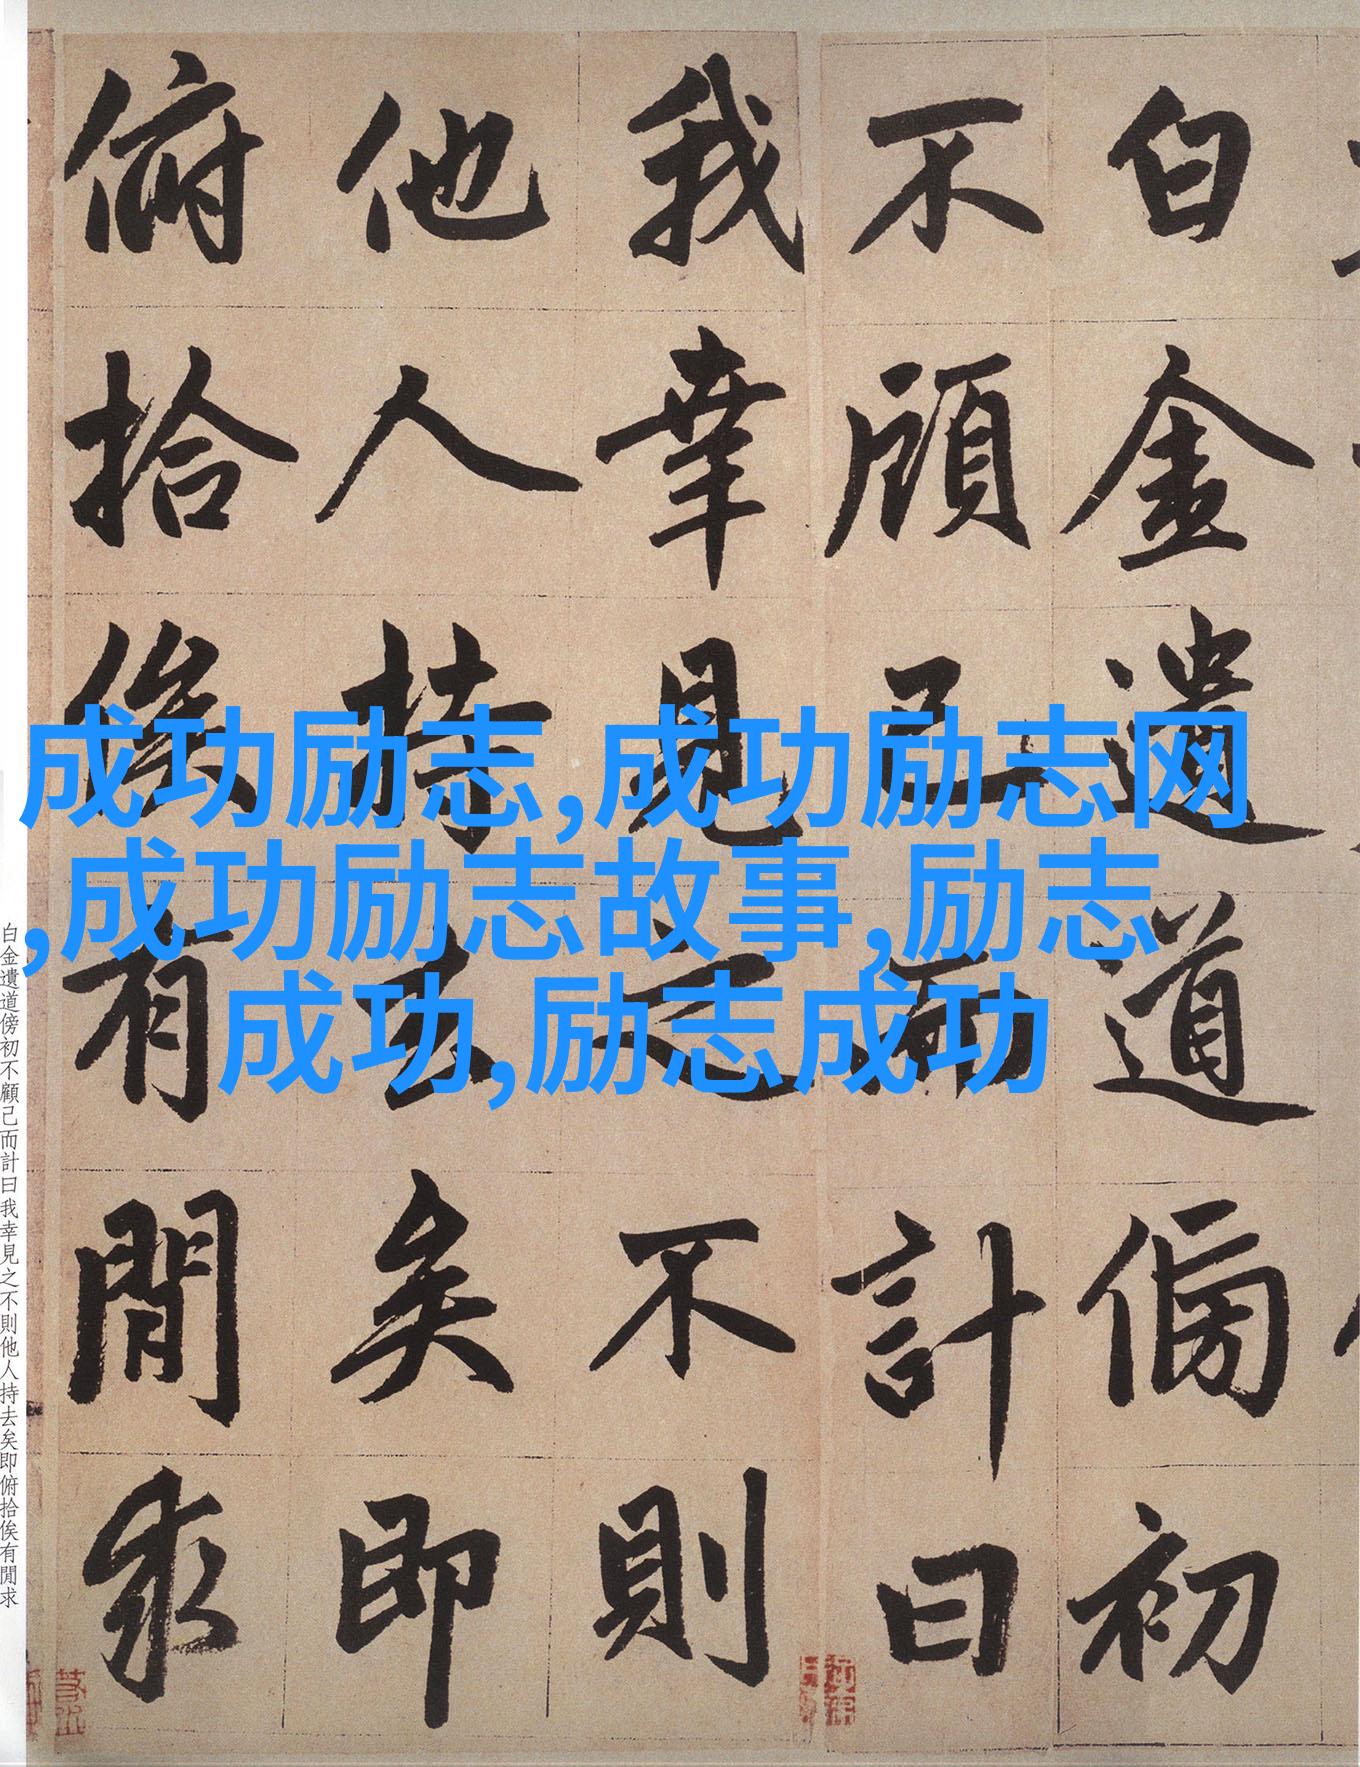 白金遺道傍初
不顧己而計曰
我幸見之不則
他人持去矣即
俯拾俟有閒求
成功励志,成功励志网
,成功励志故事,励志
成功,励志成功
白金遺道傍初不顧己而計曰我幸見之不則他人持去矣即俯拾俟有閒求